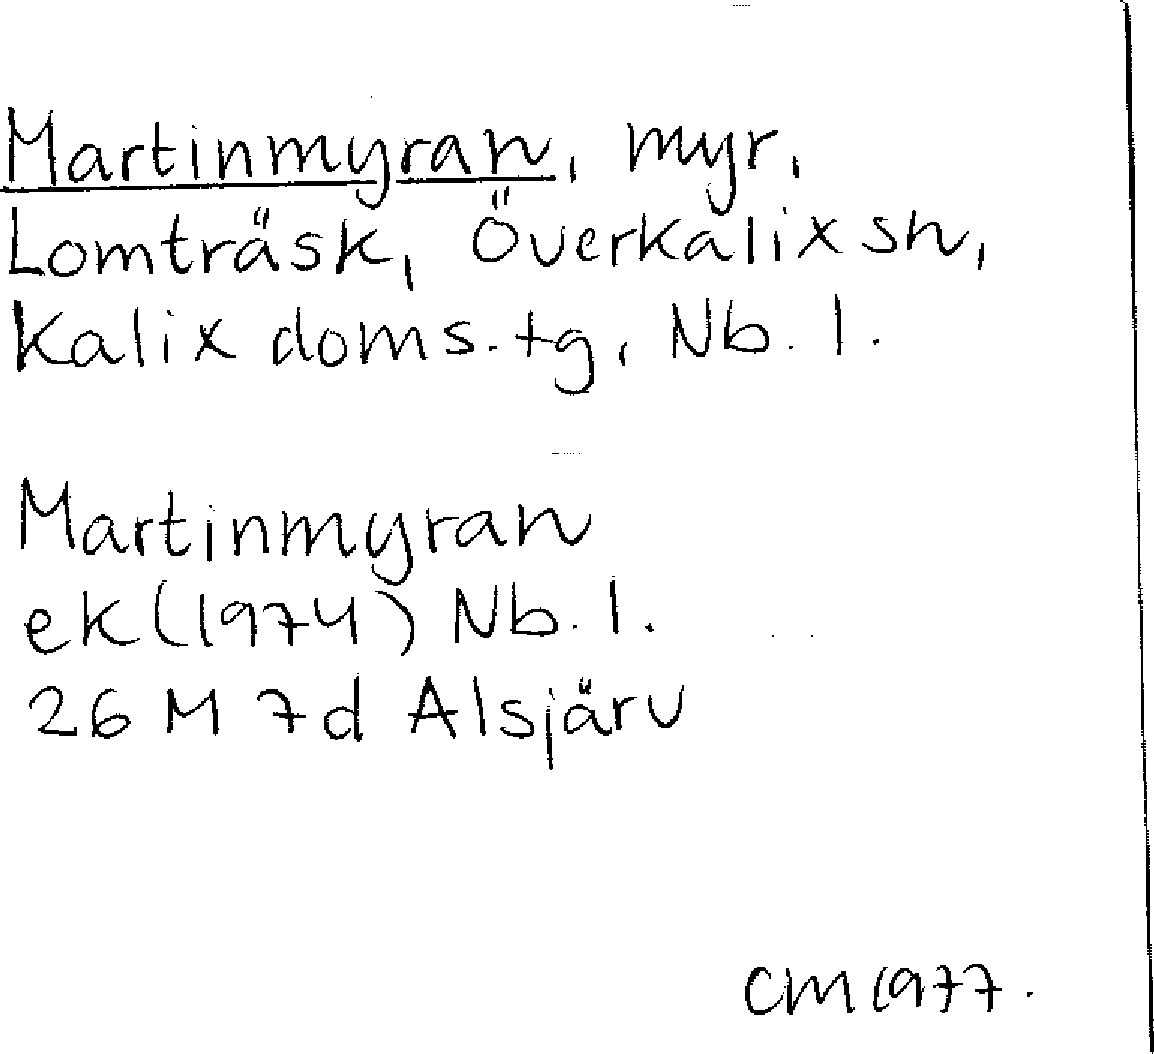 Martinmyran, myr,
Lomträsk, Överkalix sn,
Kalix doms. tg, Nb. l.
Martinmyran
ek (1974) Nb. l.
26 M 7d Alsjärv
CM 1977.